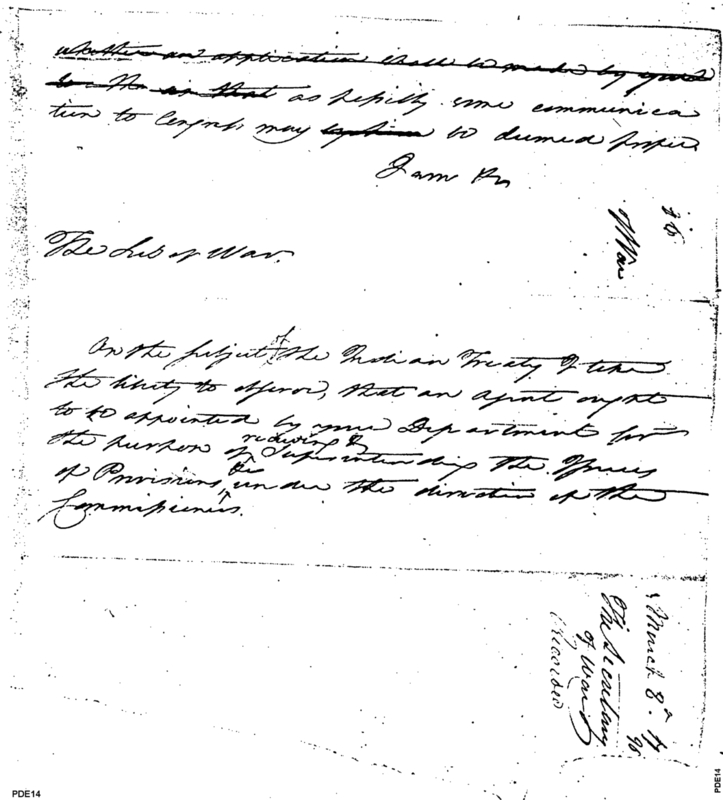 whether an application shall be made by you
to the in that as possibly some communica
tion to Congress may be deemed proper
I am &c
The Sec of War.
On the subject of the Indian Treaty I take
the liberty to observe, that an Agent ought
to be appointed by your Department for
the purpose of receiving & Superintending the Issues
of Provisions &c under the direction of the
Commissioners.
of War
March 8th 1796
The Secretary
of War
Recorded
PDE14
PDE14